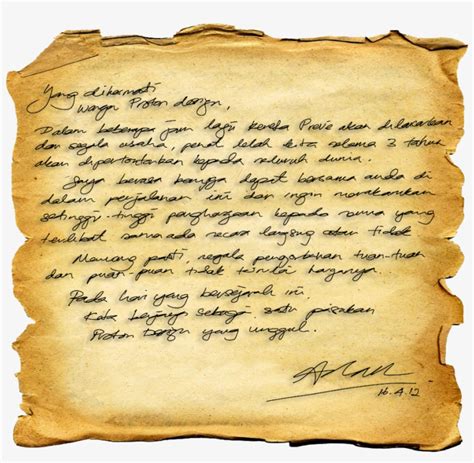 Yang dihormati
Warga Proton design,
Dalam beberapa jam lagi kereta Preve akan dilancarkan
dan segala usaha, penat lelah kita selama 3 tahun
akan dipertontonkan kepada seluruh dunia.
Saya berasa bangga dapat bersama anda di
dalam perjalanan ini dan ingin merakamkan
setinggi-tinggi penghargaan kepada semua yang
terlibat samaada secara langsung atau tidak
Memang pasti, segala pengorbanan tuan-tuan
dan puan-puan tidak ternilai harganya.
Pada hari yang bersejarah ini,
Kita berjaya sebagai satu pasukan
Proton design yang unggul.
16.4.12